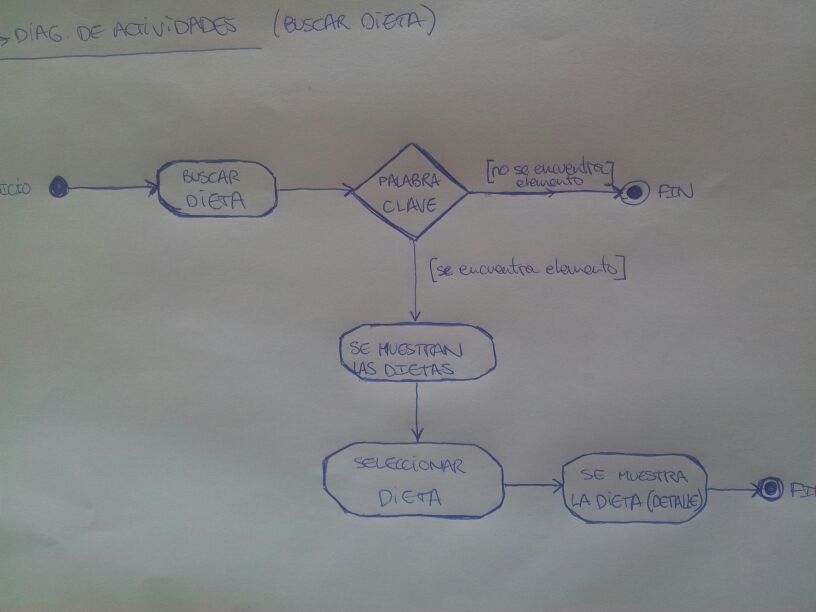 DIAG. DE ACTIVIDADES (BUSCAR DIETA)
ICIO
BUSCAR
DIETA
PALABRA
CLAVE
[no se encuentra
elemento]
FIN
[se encuentra elemento]
SE MUESTRAN
LAS DIETAS
SELECCIONAR
DIETA
SE MUESTRA
LA DIETA (DETALLE)
FIN